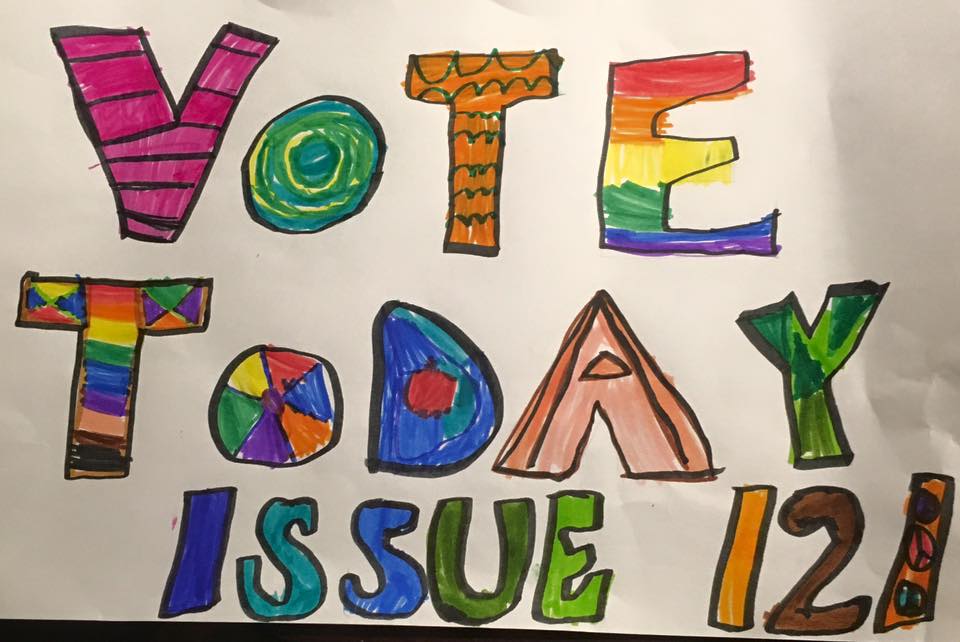 VOTE
TODAY
ISSUE 121